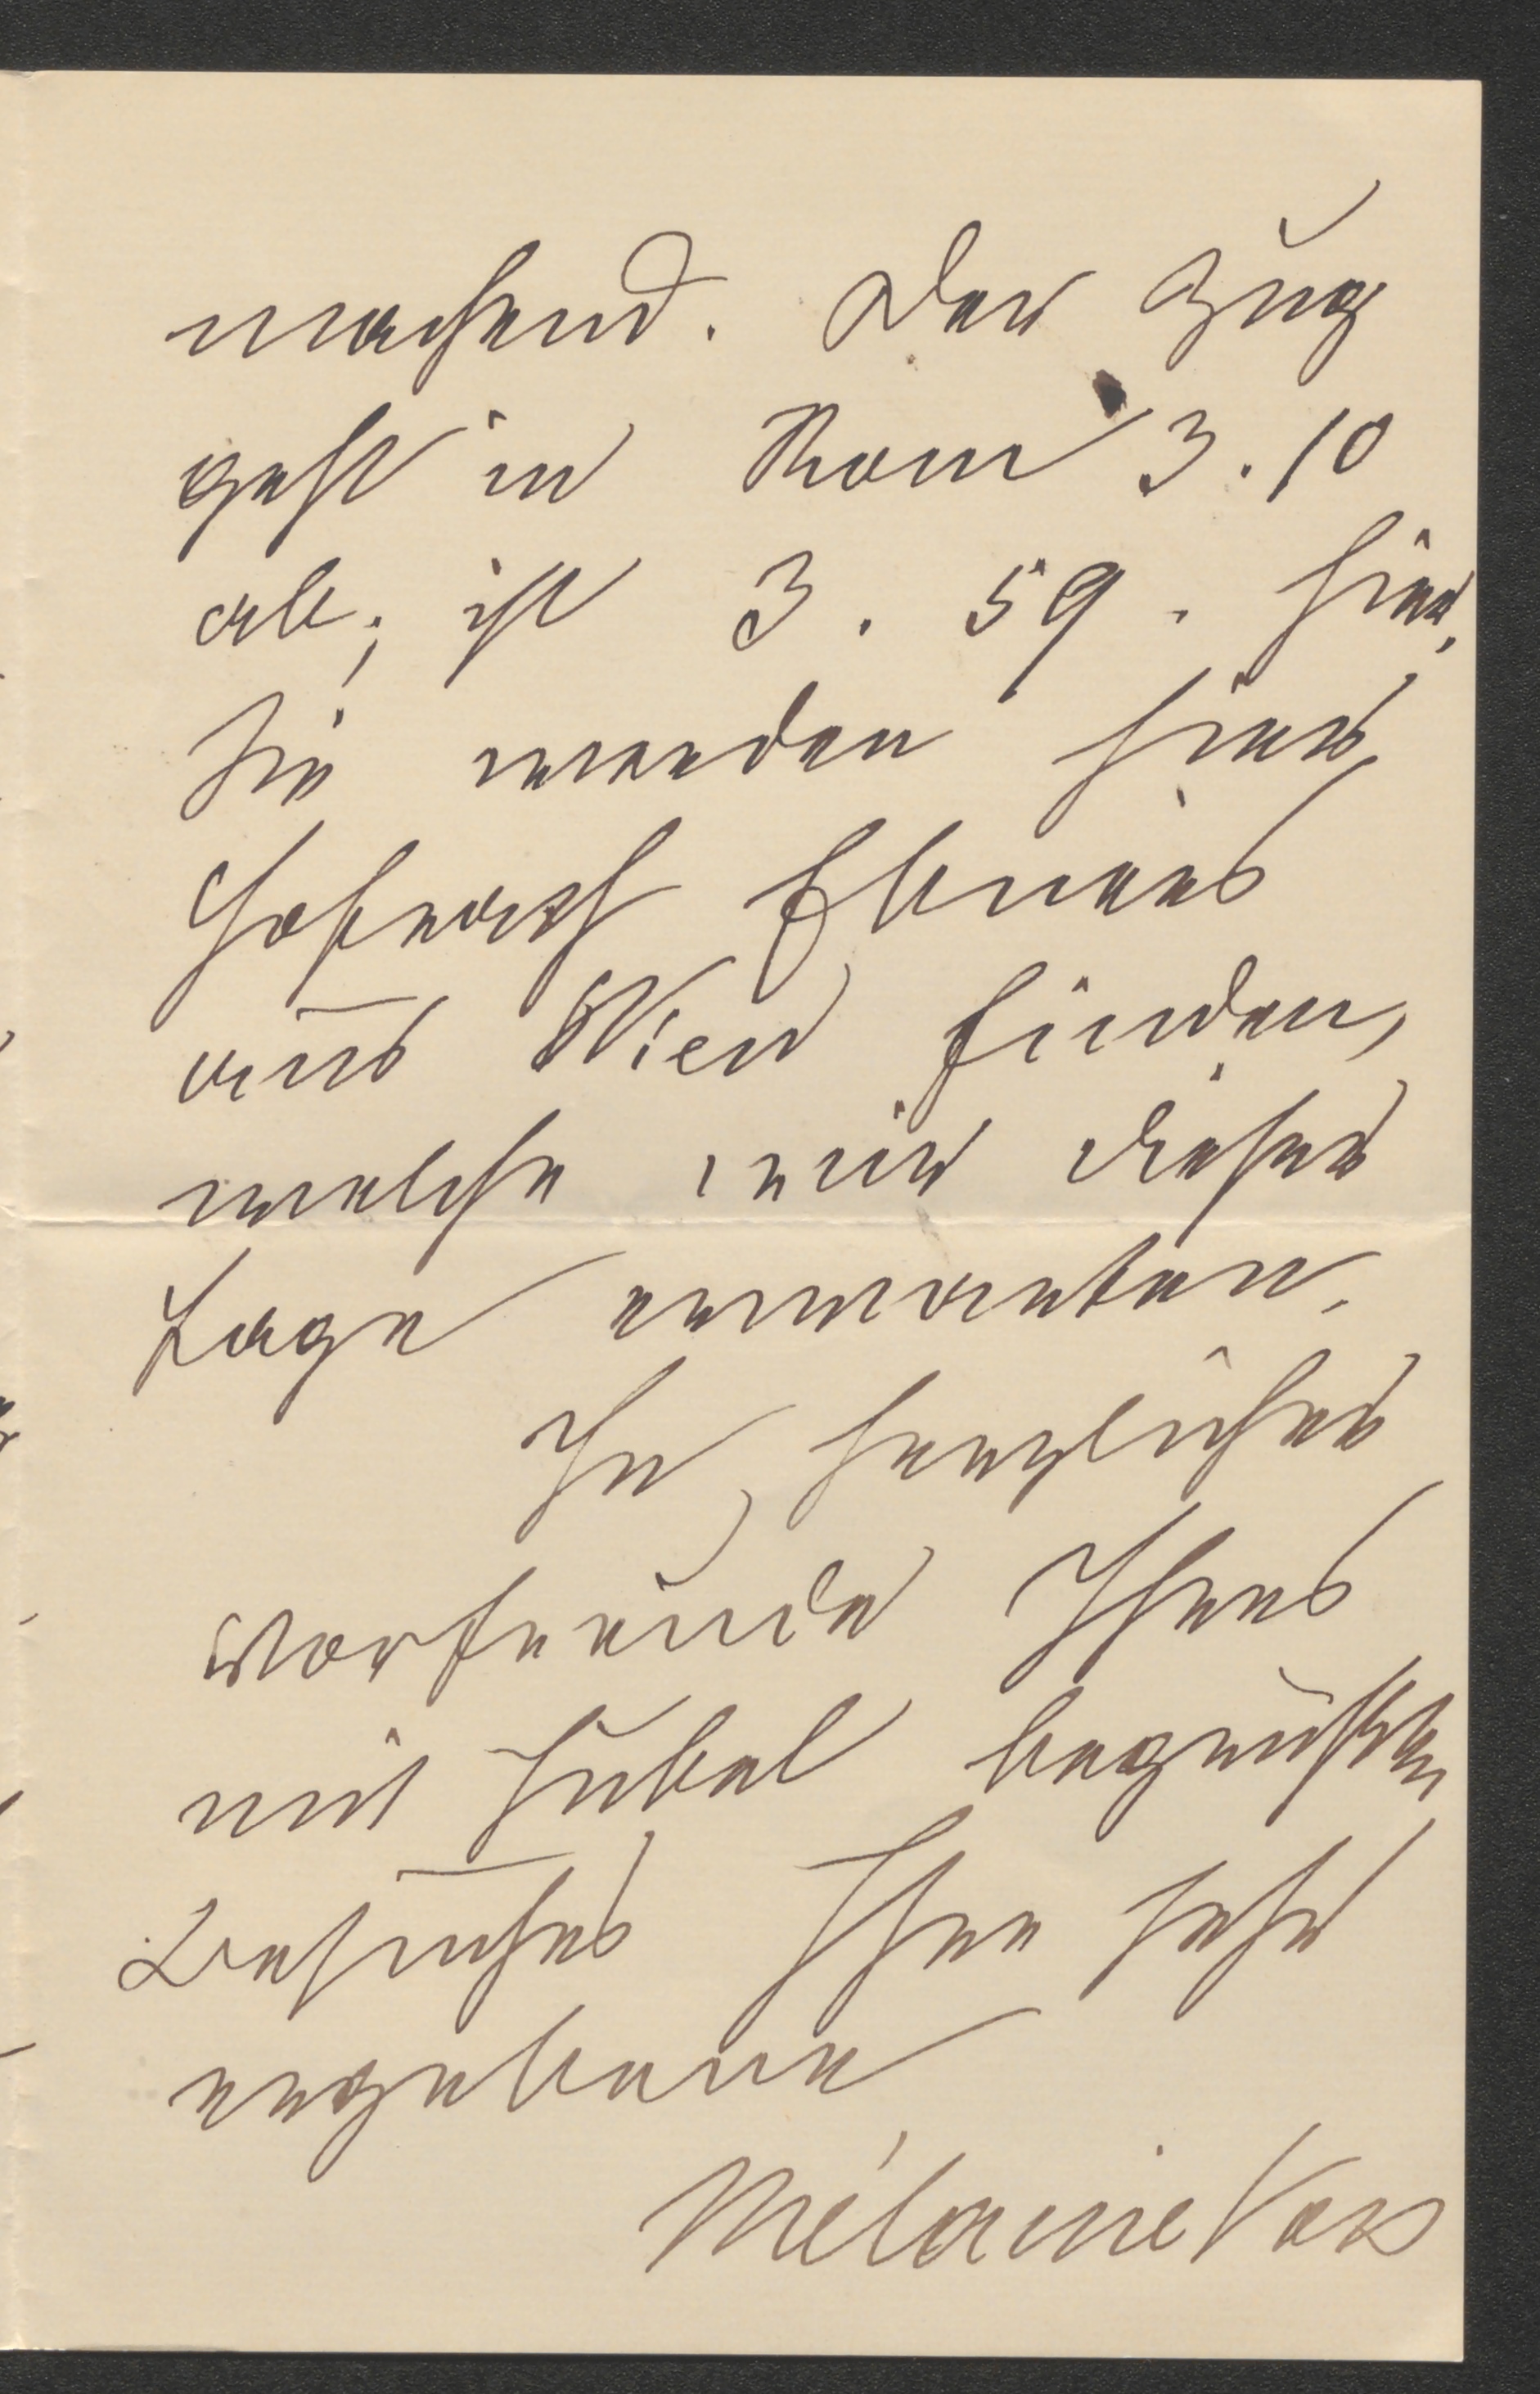 machend. Der Zug
geht in Rom 3.10
ab; ist 3. 59. hier.
Sie werden hier
Hofrath Ebners
aus Wien finden,
welche wir dieser
Tage erwarten.
In herzlicher
Vorfreude Ihres
mit Jubel begrüßten
Besuches Ihre sehr
ergebene
Mélanie Voss